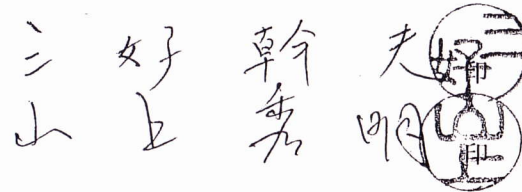 三好幹夫 印
山上秀明 印